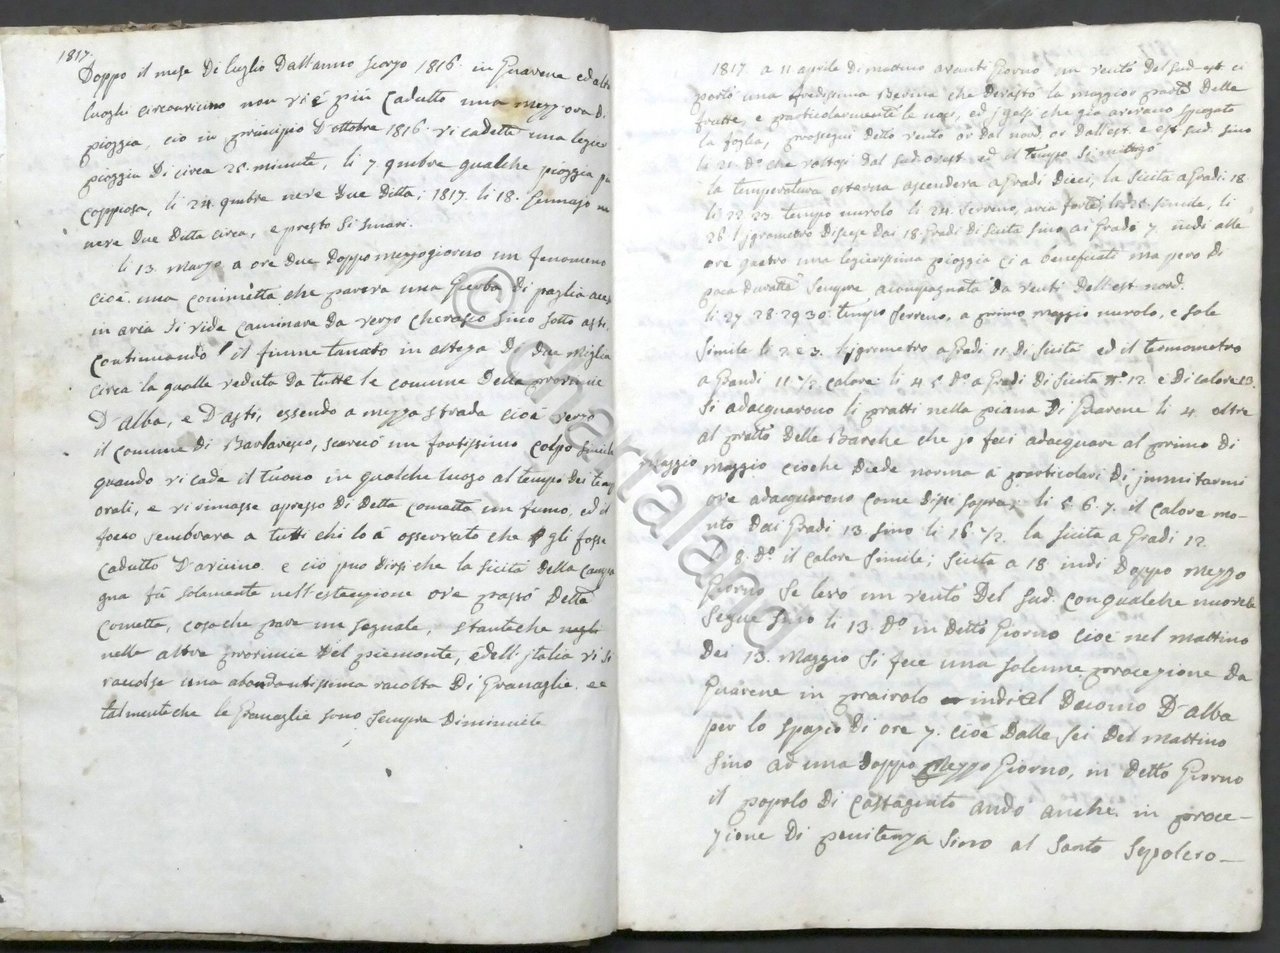 1817.
Doppo il mese di luglio dall'anno scorzo 1816. in Guarene ed altri
luoghi circonvicino non vi é più cadutto una mezz ora di
pioggia, cio in principio d'ottobre 1816. vi cadette una legier
pioggia di circa 25. minute, li 7 9mbre qualche pioggia pu
coppiosa, li 24. 9mbre neve due ditta; 1817. li 18. Gennajo
neve due ditta circa, e presto si smarì.
li 13. Marzo a ore due doppo mezzogiorno un fenomeno
cioé una cominetta che pareva una gierba di paglia
in aria si vide caminare da verzo Cherasco sino sotto asti
continuando il fiume tanaro in altezza di due miglia
circa la qualle veduta da tutte le comune della provincie
D'alba, e D'asti, essendo a mezza strada cioé verzo
il comune di Barbaresco, scarico un fortissimo colpo simile
quando vi cade il tuono in qualche luogo al tempo dei temp
orali, e vi rimasse apresso di detta cometta un fumo, ed il
foco sembrava a tutti chi lo á osservato che gli fosse
cadutto D'avicino. e cio puo dirsi che la sicita della campa
gna fú solamente nell'estenzione ove passó detta
cometta, cosa che pare un segnale, stante che negli
nelle altre provincie del piemonte, e dell'italia vi si
racolse una abondantissima racolta di Granaglie. e
talmente che le Granaglie sono sempre diminuite
1817. a 11 aprile di mattino avanti Giorno un vento del sud est ci
portó una fredissima Brina che devastó la maggior parte delle
frutte, e particolarmente le noci, ed i gelsi che già avevano spuntato
la foglia, prosegui detto vento or dal nord or dall'est. e est sud. sino
li 21. do. che voltosi dal sud ovest ed il tempo si mitigó
la temperatura esterna ascendeva a Gradi dieci, la sicita a Gradi 18.
li 22. 23. tempo nuvolo li 24. serreno, aria forte, li 25. simile, li
26. l'jgrometro discese dai 18 Gradi di sicita sino ai Grado 7. indi alle
ore quatro una legierissima pioggia ci a beneficati ma pero di
poca duratta sempre acompagnata da venti dell'est nord.
li 27 28. 29 30. tempo serreno, a primo maggio nuvolo, e sole
simile li 2 e 3. l'jgrometro a Gradi 11. di sicita ed il termometro
a Grandi 11 1/2 calore. li 4 5 do. a Gradi di sicita 12. e di calore 13.
si adacquarono li pratti nella piana di Guarene li 4. oltre
al pratto delle Barche che jo feci adacquare al primo di
maggio
maggio cioche diede norma á particolari di jmmitarmi
ore adacquarono come dissi sopra; li 5 6. 7. il calore mo-
ntó dai Gradi 13 sino li 16 1/2. la sicita a Gradi 12.
8. do. il calore simile; sicita a 18. indi doppo mezzo
Giorno se levó un vento del sud. con qualche nuvole
segue sino li 13. do. in detto Giorno cioé nel mattino
dei 13. Maggio si fece una solenne procezione da
Guarene in indi al Duomo D'alba
per lo spazio di ore 7. cioé dalle sei del mattino
sino ad una doppo mezzo Giorno, in detto Giorno
il popolo di Castagnito andó anche in proce-
zione di penitenza sino al Santo Sepolcro-
© chartaland